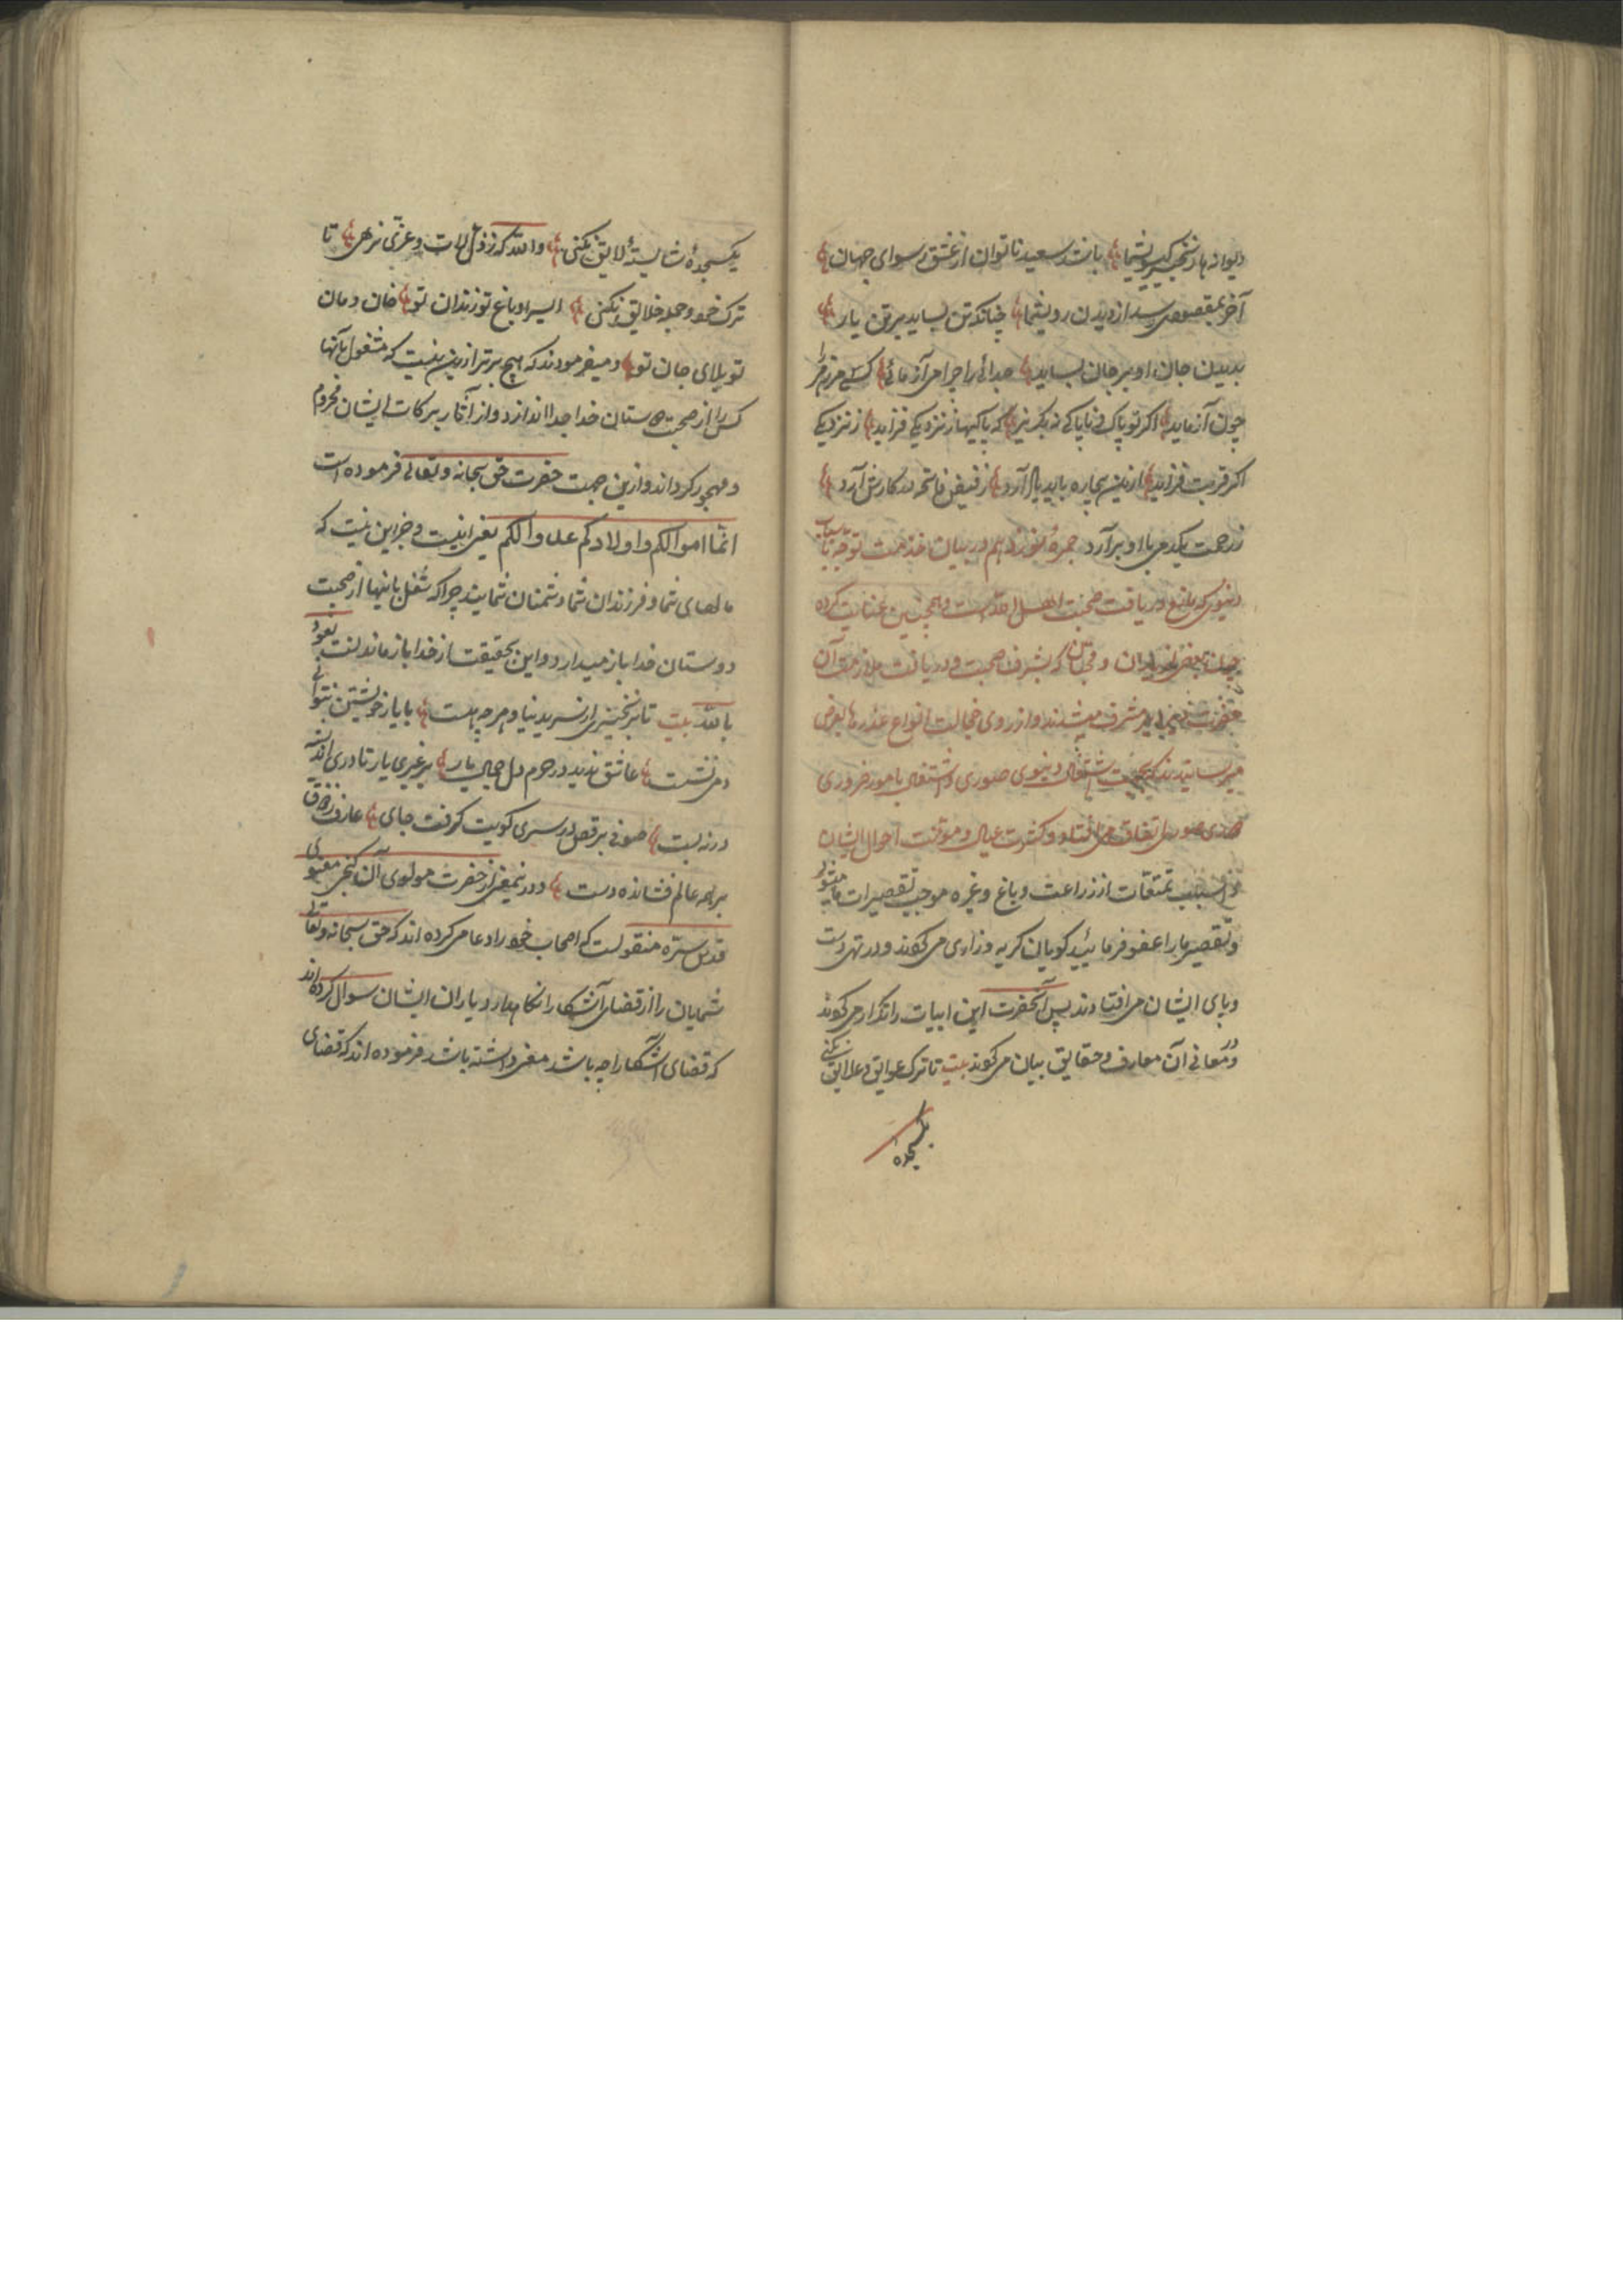 دیوانه ها زنجیر گیسوی شما باشد سعید ناتوان از عشق رسوای جهان
آخر بمقصود می رسد از دیدن روی شما چنانکه تن بساید بر تن یار
بدیدن جان او بر جان بساید جدائی را چرا می آزمائی کسی مر زهر را
چون آزماید اگر تو پاک و ناپاکی مگریز که پاکیها ز نزدیکی فزاید ز نزدیکی
اگر قربت فزاید ازین بیچاره باید یاد آرد ز فیض فاتحه در کارش آرد
ز رحمت یکدمی با او برآرد در بیان مذمت توجه باسباب
دنیوی که مانع دریافت صحبت اهل الله است و همچنین عنایت کرده
بعضی یاران وقتی که بشرف صحبت و دریافت ملازمت آن
مشرف میشدند و از روی خجالت انواع عذرها بعرض
میرسانیدند که بجهت اشتغال دنیوی صوری و اشتغال بامور ضروری
اتفاق می افتاد و کثرت عیال و مؤنت احوال ایشان
و بسبب تمتعات از زراعت و باغ و غیره موجب تقصیرات ما میشود
و تقصیر ما را عفو فرمائید گویان گریه و زاری می کنند و در تهی دست
و پای ایشان می افتادند پس آنحضرت این ابیات را تکرار می کنند
و در معانی آن معارف و حقایق بیان می کنند بیت تا ترک عوایق و علایق نکنی
یکسجده
یکسجدهٔ شایستهٔ لایق نکنی والله که ز دل لات و عزی نرهی تا
ترک خود و جمله خلایق نکنی ای سرا و باغ تو زندان تو خان و مان
تو بلای جان تو و میفرمودند که هیچ بدتر ازین نیست که مشغول بآنها
کس را از صحبت دوستان خدا جدا اندازد و از آثار برکات ایشان محروم
و مهجور گرداند و ازین جهت حضرت حق سبحانه و تعالی فرموده است
انما اموالکم و اولادکم عدوا لکم یعنی اینست و جز این نیست که
مالهای شما و فرزندان شما دشمنان شمایند چرا که شغل باینها از صحبت
دوستان خدا باز میدارد و این بحقیقت از خدا باز ماندنست نعوذ
بالله بیت تا برنخیزی از سر دنیا و هر چه هست با یار خویشتن نتوانی
دمی نشست عاشق ندید در حرم دل جمال یار بر غیری یار تا دری اندیشه
در نه بست صوفی برقص در سر کویت گرفت جای عارف ز ذوق
بر همه عالم فشانده دست و درین معنی از حضرت مولوی آن گنج معنوی
قدس سره منقولست که اصحاب خود را دعا می کرده اند که حق سبحانه و تعالی
شمایان را از قضای آشکارا نگاه دارد یاران ایشان سوال کرده اند
که قضای آشکارا چه باشد معنی داشته باشد فرموده اند که قضای